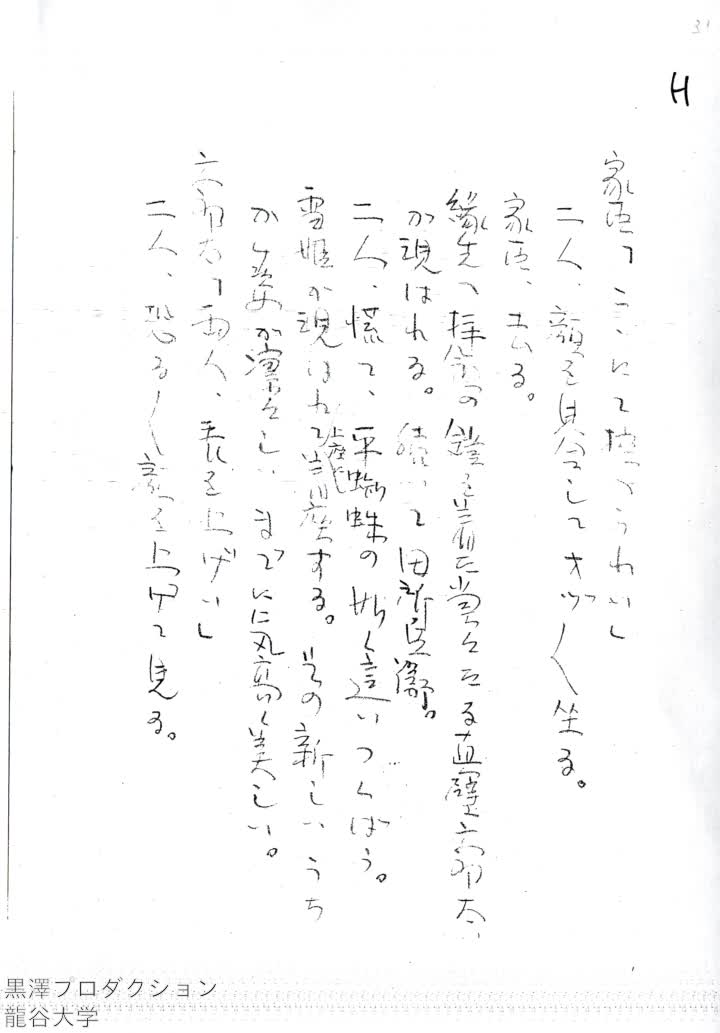 31
H
家臣「こゝにて控へられい」
二人、顔を見合してオヅ〱坐る。
家臣、去る。
縁先へ拝領の鎧を着た堂々たる真壁六郎太
が現はれる。続いて田所兵衛。
二人、慌て、平蜘蛛の如く這いつくばう。
雪姫が現はれて上段に着座する。その新しいうち
かけ姿が凛々しいまでに気高く美しい。
六郎太「両人、表を上げい」
二人、恐る〱顔を上げて見る。
黒澤プロダクション
龍谷大学